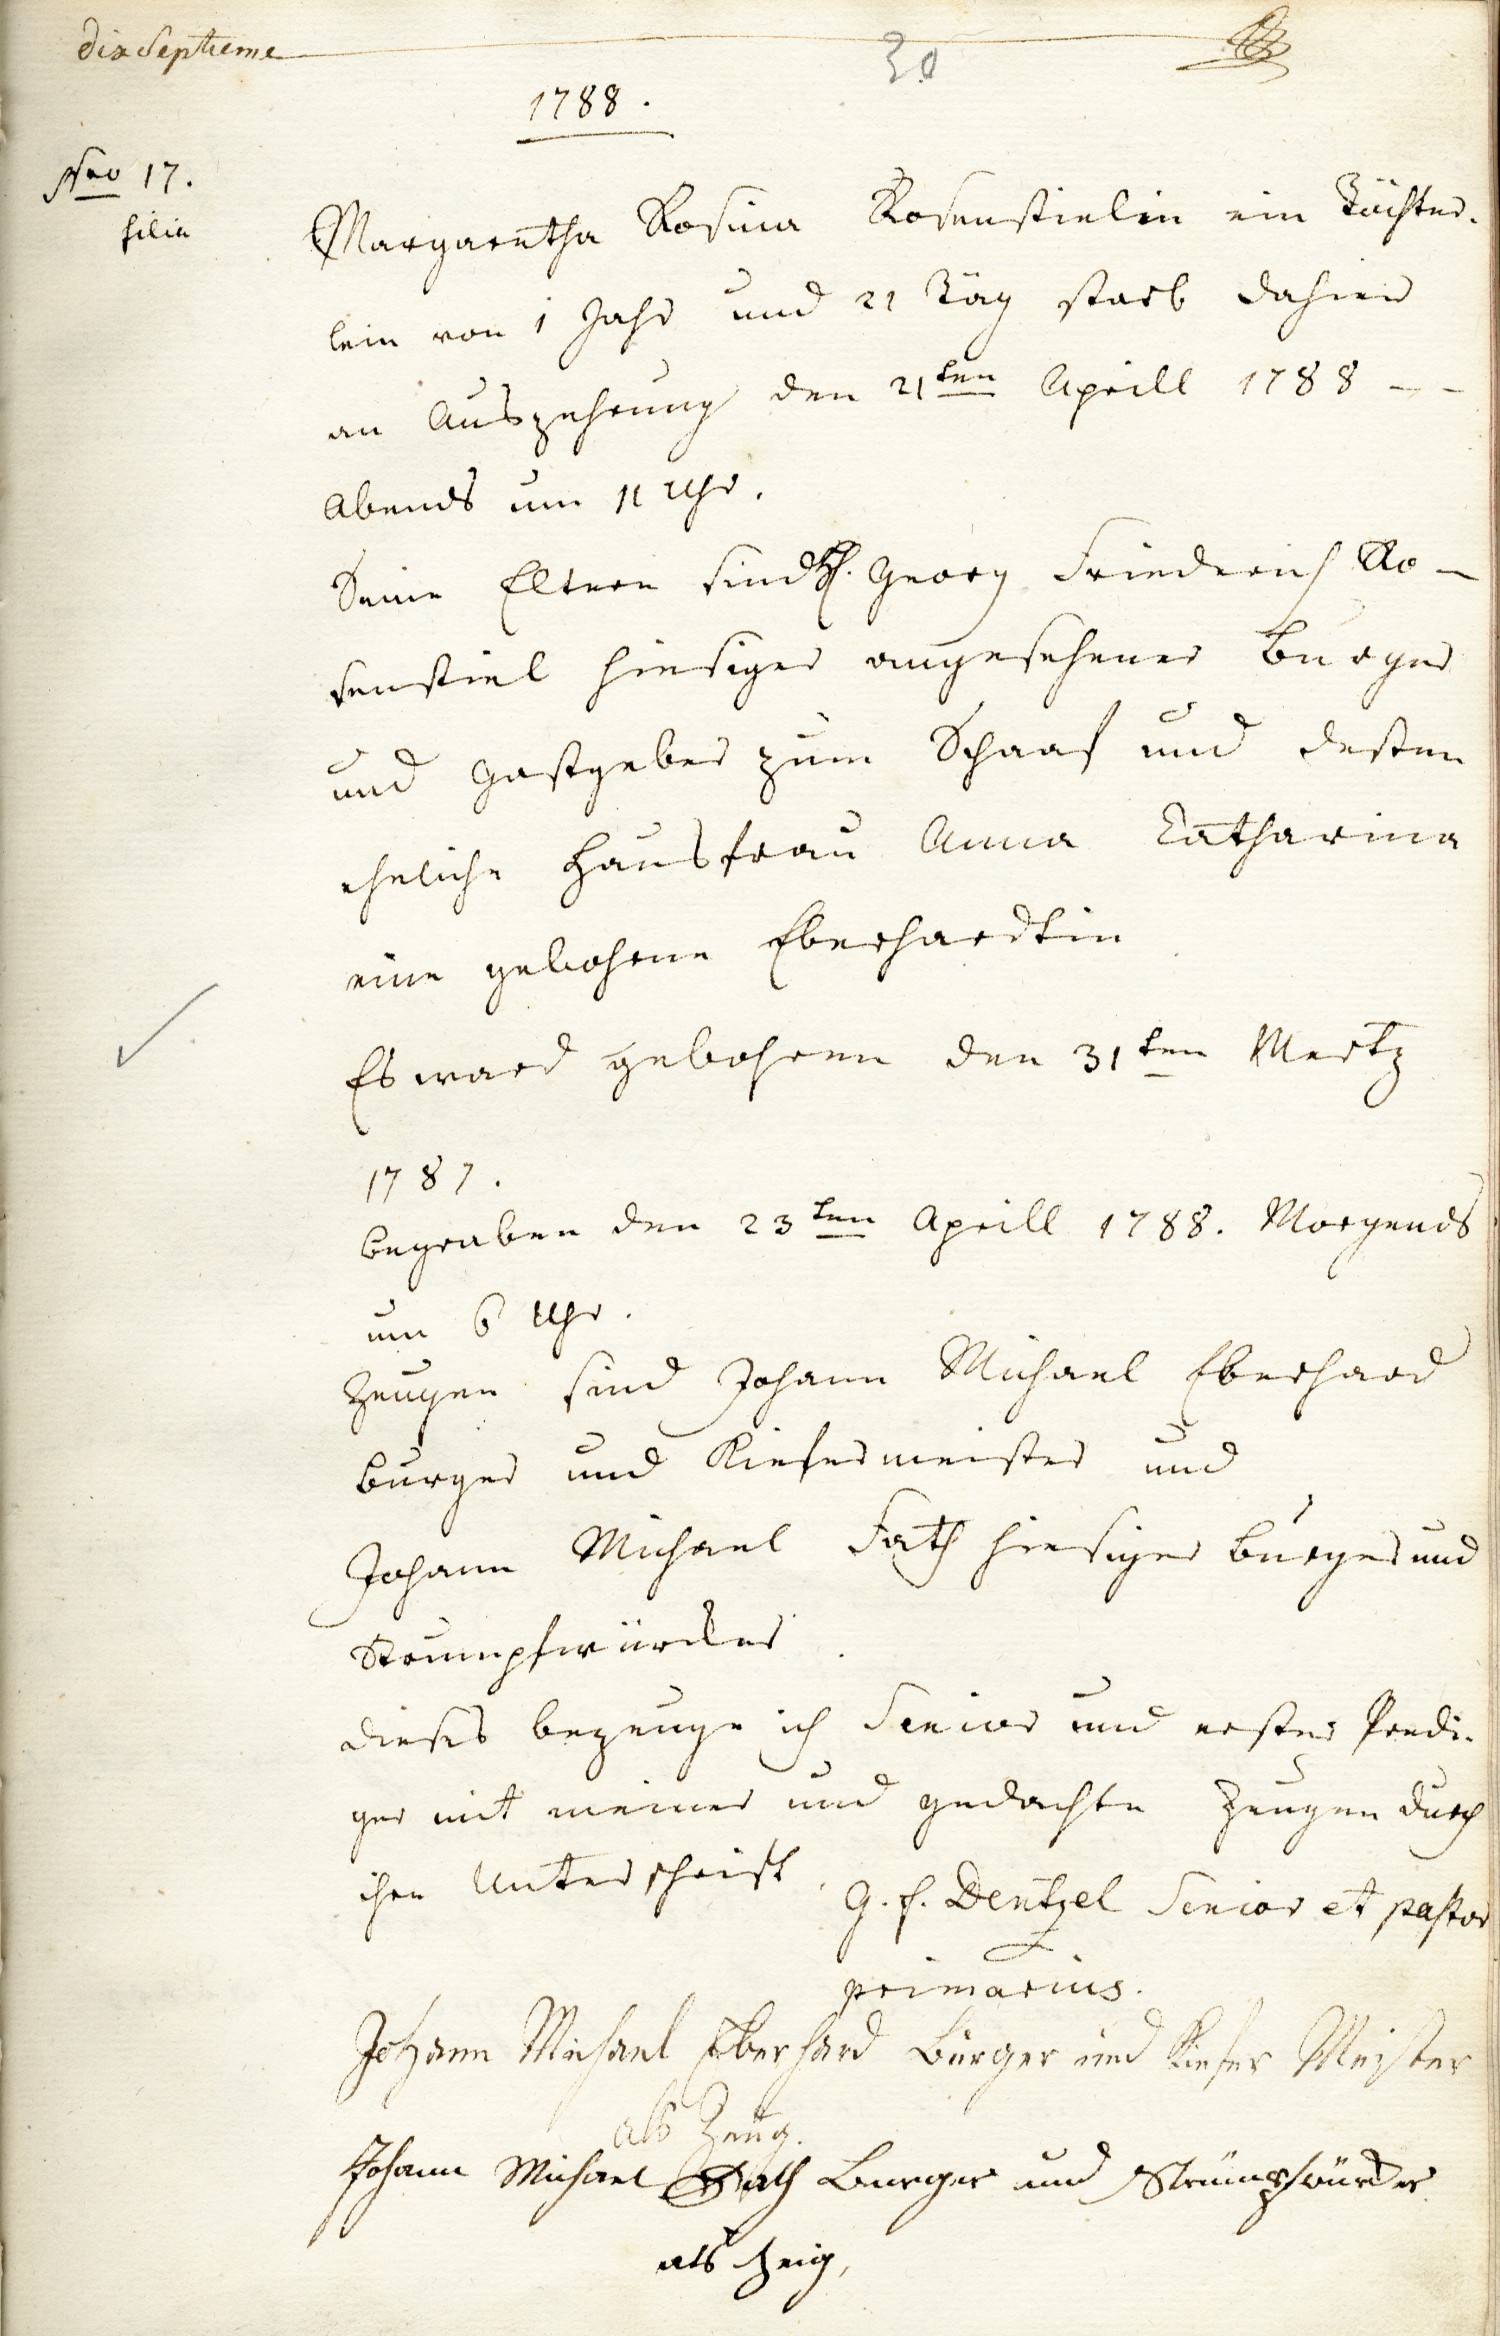 dix septieme
30
1788.
Nro 17.
filia
Margaretha Rosina Rosenstielin ein Töchter-
lein von 1 Jahr und 21 Täg starb dahier
an Auszehrung den 21ten Aprill 1788 - -
Abends um 11 Uhr.
Seine Eltern sind H. Georg Friederich Ro-
senstiel hiesiger angesehener Burger
und Gastgeber zum Schaaf und desten
eheliche Hausfrau Anna Catharina
eine gebohrne Eberhardtin
Es ward gebohren den 31ten Mertz
1787.
begraben den 23ten Aprill 1788. Morgends
um 6 Uhr.
Zeugen sind Johann Michael Eberhard
burger und Kiefermeister und
Johann Michael Fath hiesiger burger und
Strumpfwürcker
dieses bezeuge ich Senior und erster Predi-
ger mit meiner und gedachte Zeugen durch
ihre Unterschrift. G. f. Dentzel Senior et pastor
primarius.
Johann Michael Eberhard Burger und Kiefer Meister
als Zeug.
Johann Michael Fath Burger und Strümpfwürcker
als Zeig,